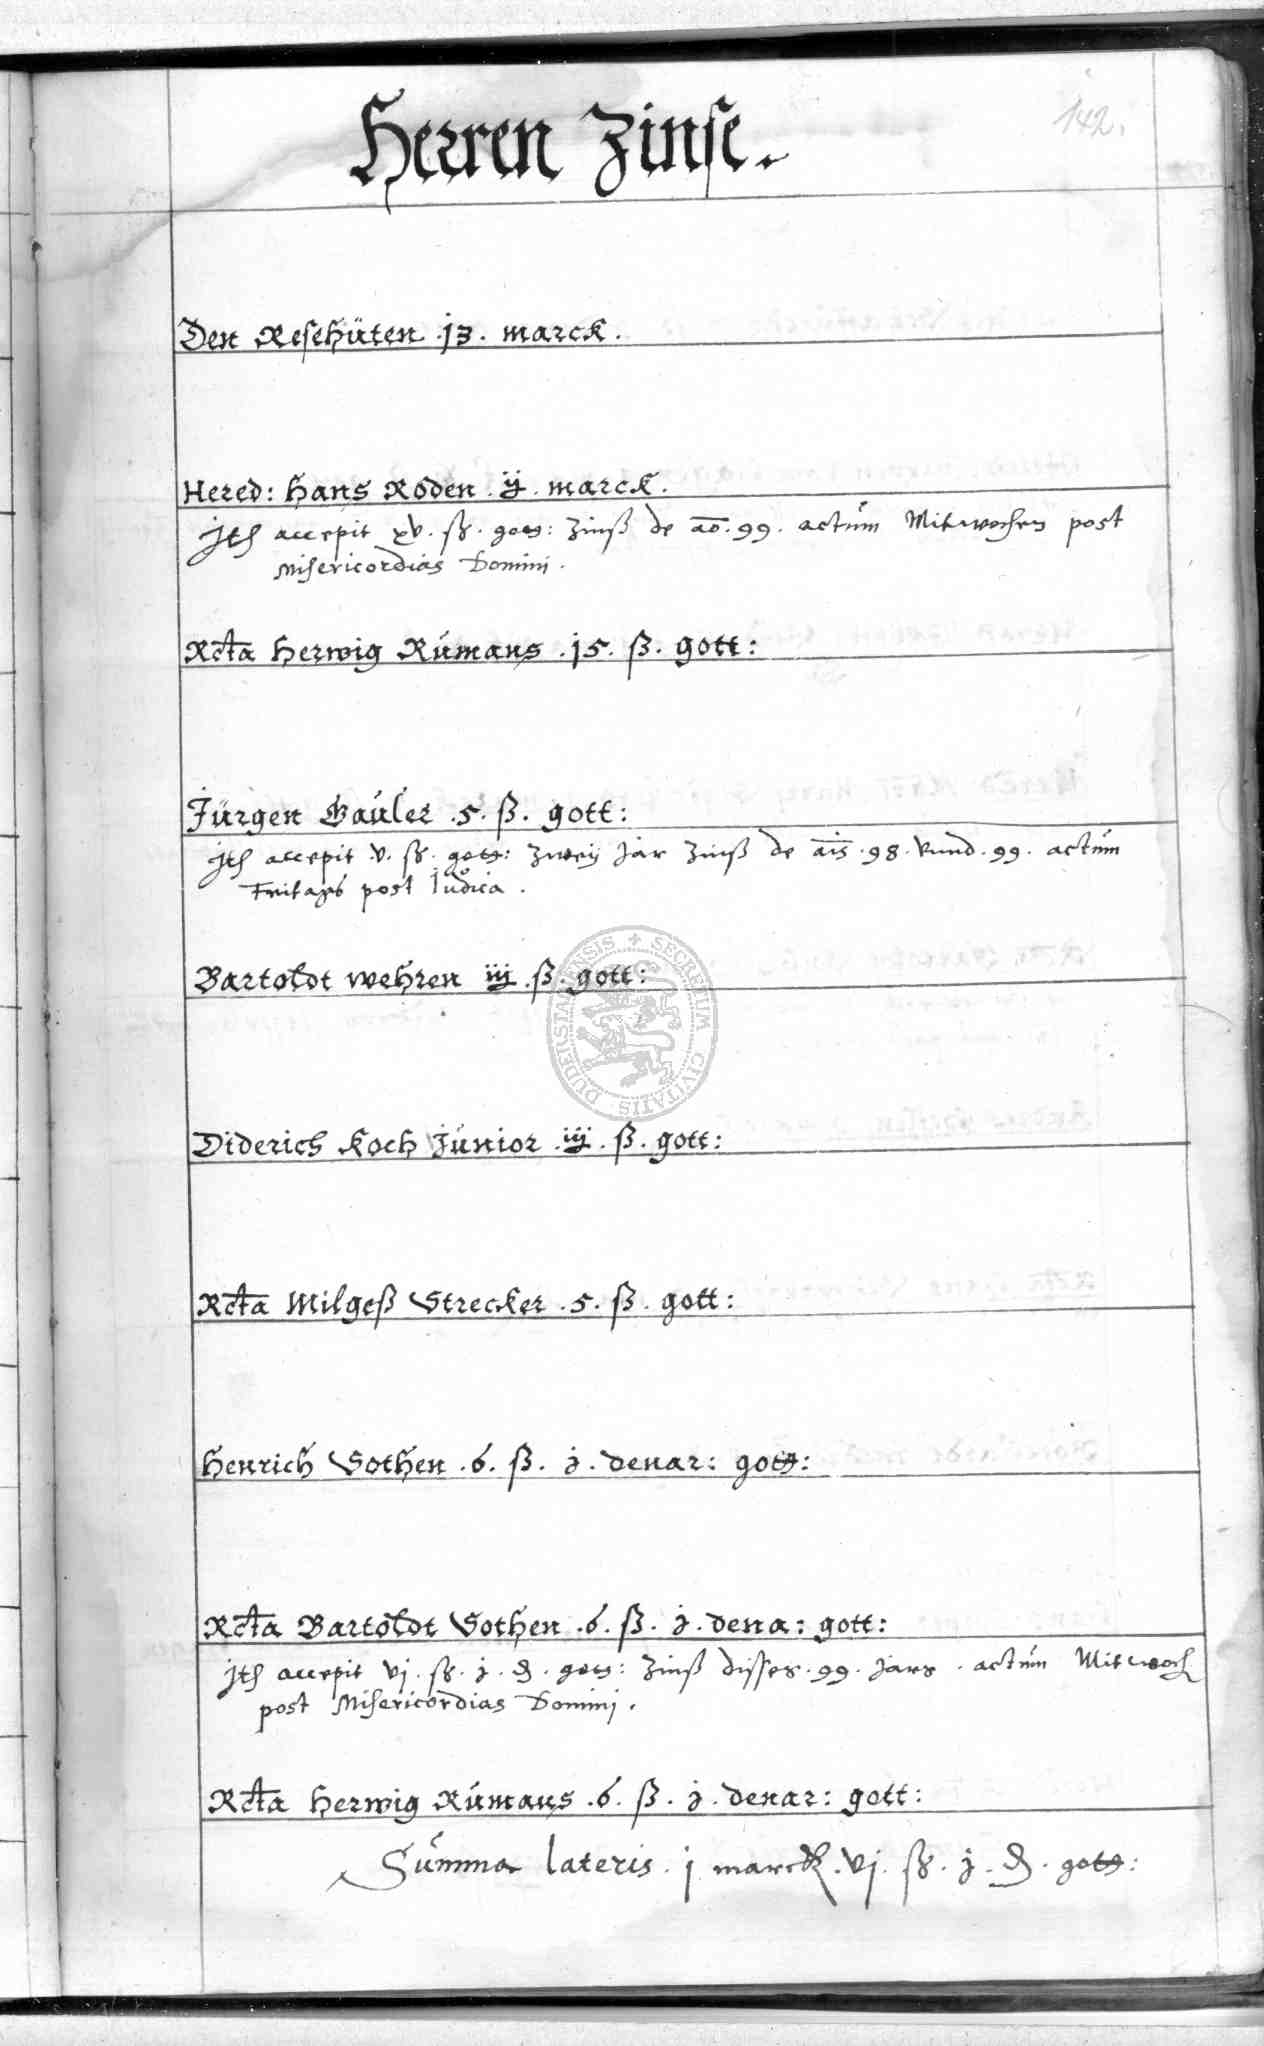 142.
Herren Zinse.
Den Resehüten .13. marck.
Hered: Hans Roden .ij. marck.
Ith accepit xv. ß. gott: Zinß de ao. 99. actum Mitwochen post
Misericordias Domini.
Rcta Herwig Rúmans .15. ß. gott:
Jürgen Gaúler .5. ß. gott:
Ith accepit .v. ß. gott: zweij Jar Zinß de ais .98. vnnd .99. actúm
Freitags post Iudica.
Bartoldt wehren iij .ß. gott:
Diderich Koch Júnior .iij. ß. gott:
Rcta Milgeß Strecker .5. ß. gott:
Henrich Sothen .6. ß. j. denar: gott:
Rcta Bartoldt Sothen .6. ß. j. dena: gott:
Ith accepit vj. ß. j. d. gott: Zinß disses .99. Jars . actúm Mitwoch
post Misericordias Domini.
Rcta Herwig Rúmans .6. ß. j. denar: gott:
Súmma lateris . j marck .vj. ß. j. d. gott:
SECRETUM CIVITATIS DUDERSTADENSIS